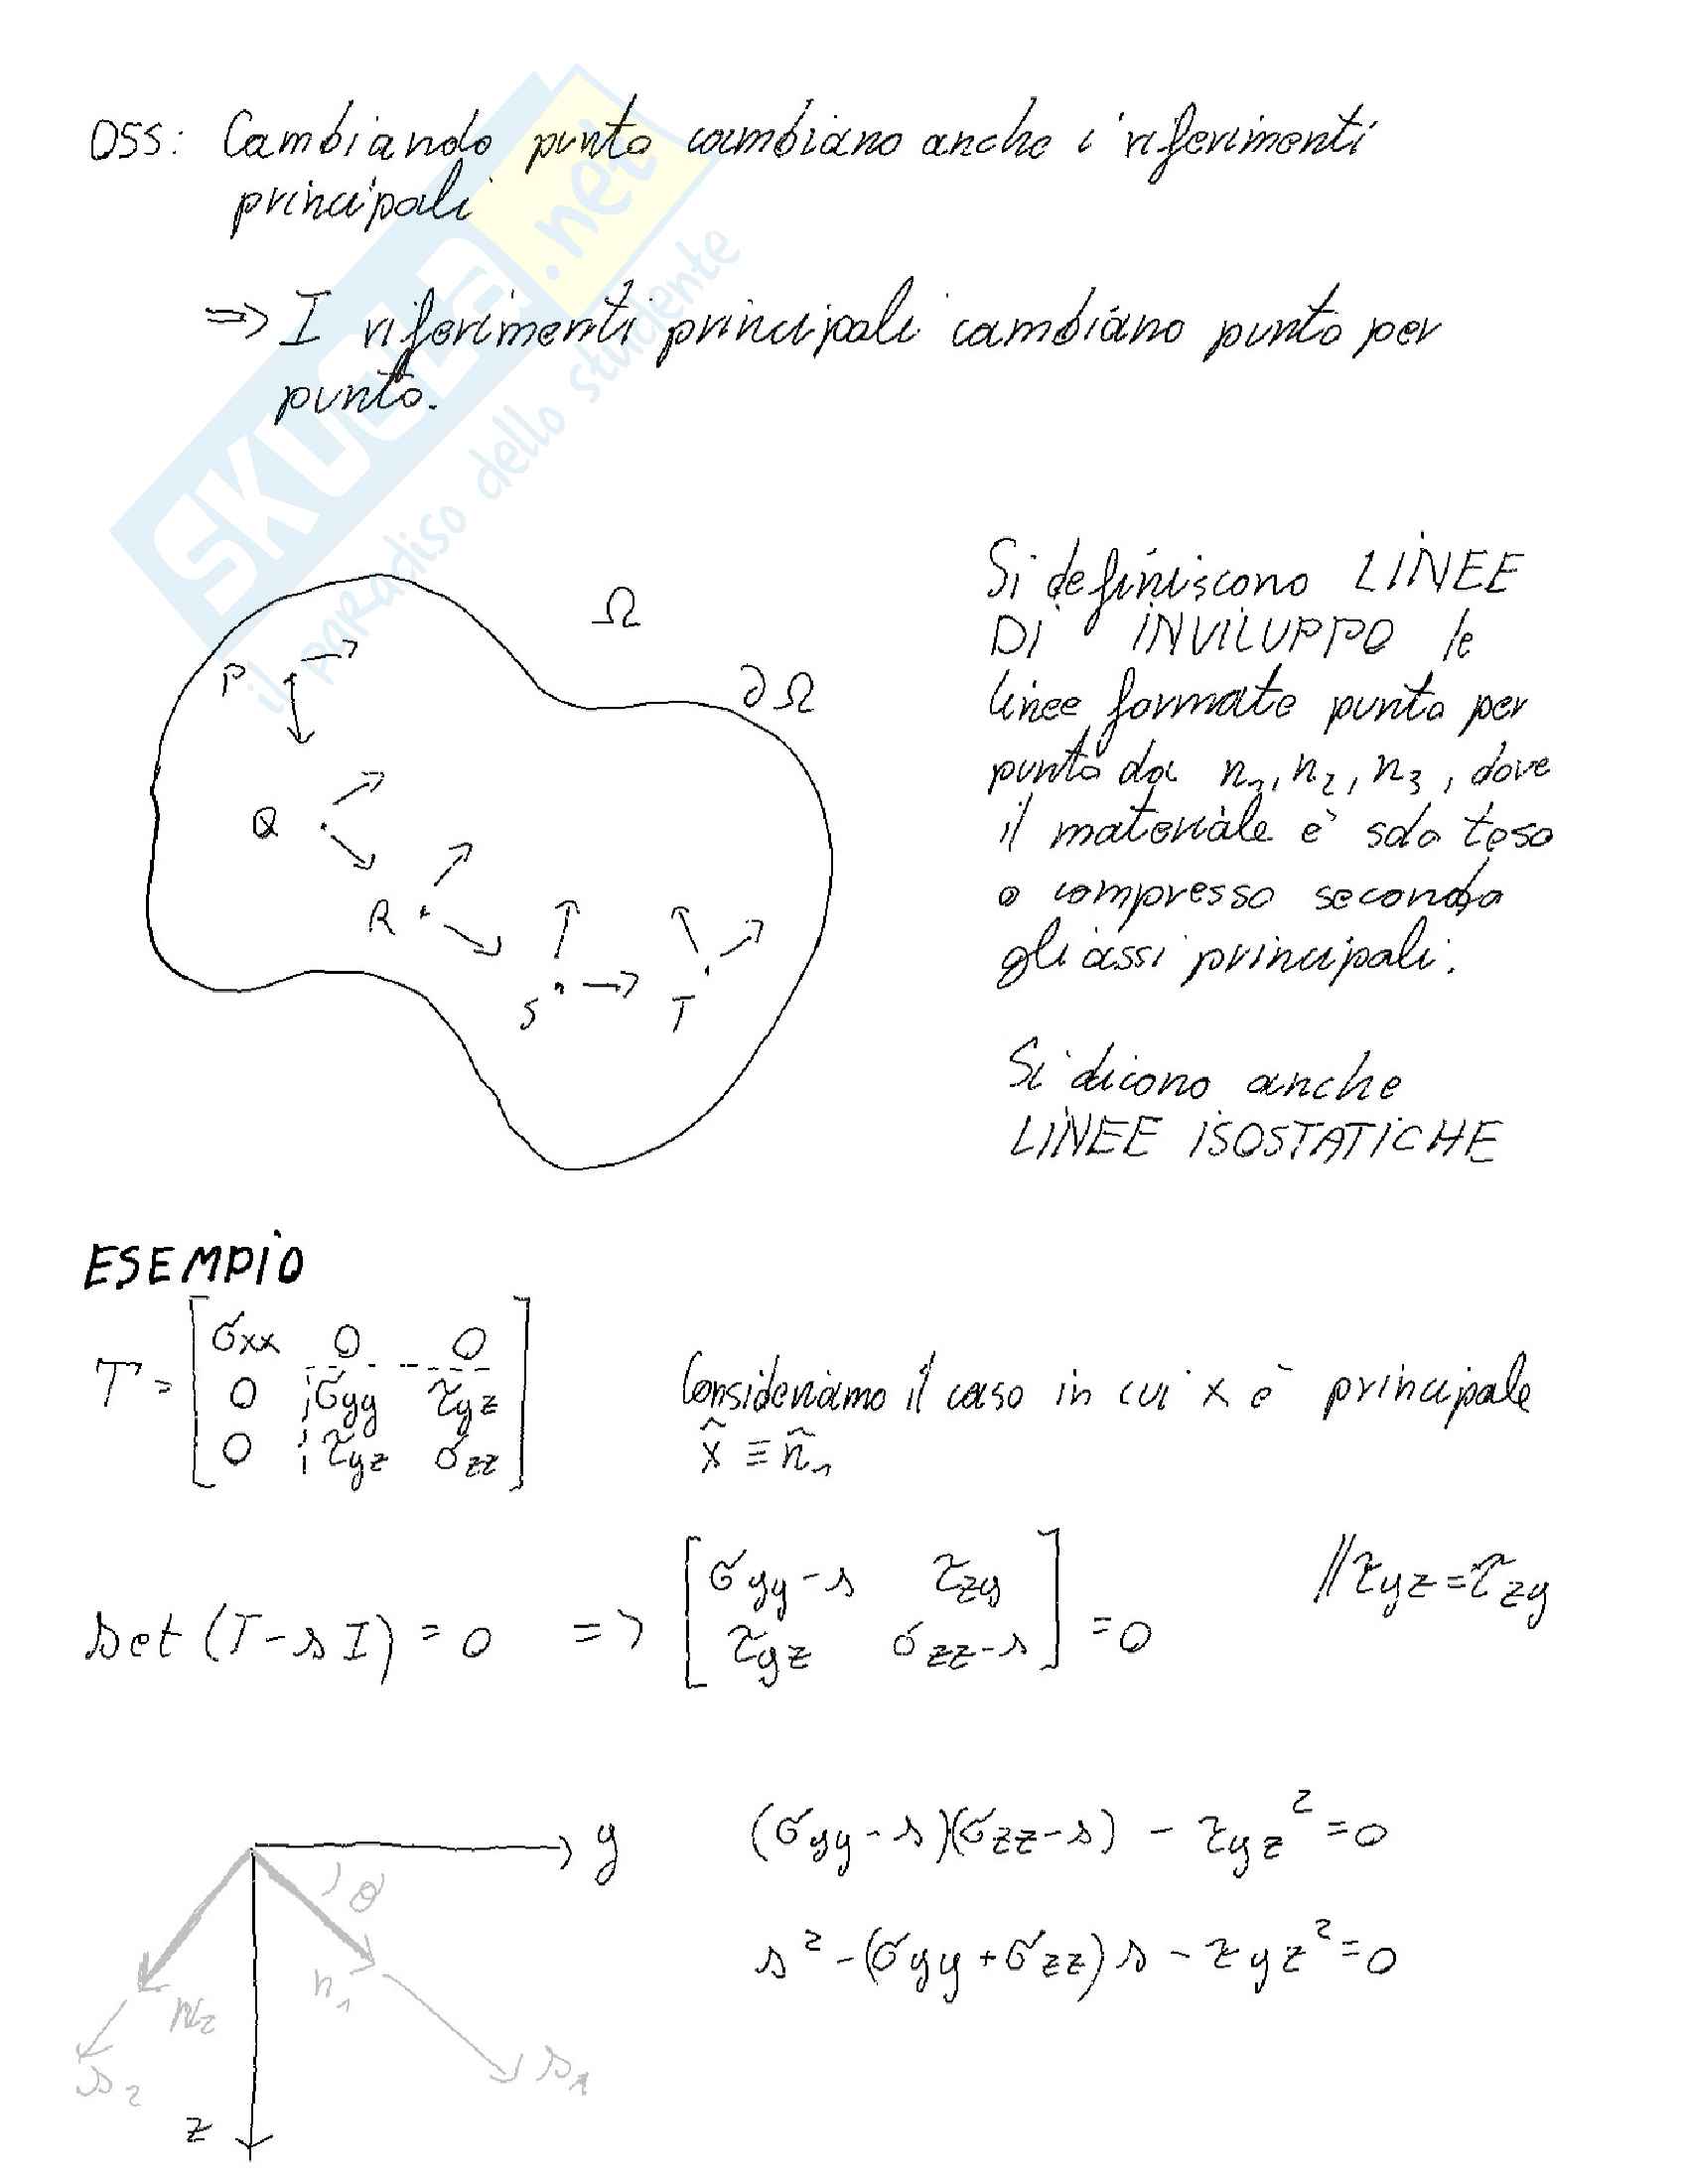 OSS: Cambiando punto cambiano anche i riferimenti
principali
=> I riferimenti principali cambiano punto per
punto.
SKUOLA.net
il paradiso dello studente
Ω
∂Ω
P
Q
R
S
T
Si definiscono LINEE
DI INVILUPPO le
linee formate punto per
punto da n₁, n₂, n₃, dove
il materiale è solo teso
o compresso secondo
gli assi principali.
Si dicono anche
LINEE ISOSTATICHE
ESEMPIO
T = [σxx 0 0
0 σyy τyz
0 τyz σzz]
Consideriamo il caso in cui x è principale
x̂ ≡ n̂₁
det (T - sI) = 0 => [σyy - s τzy
τyz σzz - s] = 0 // τyz = τzy
y
θ
n₁
n₂
s₁
s₂
z
(σyy - s)(σzz - s) - τyz² = 0
s² - (σyy + σzz) s - τyz² = 0